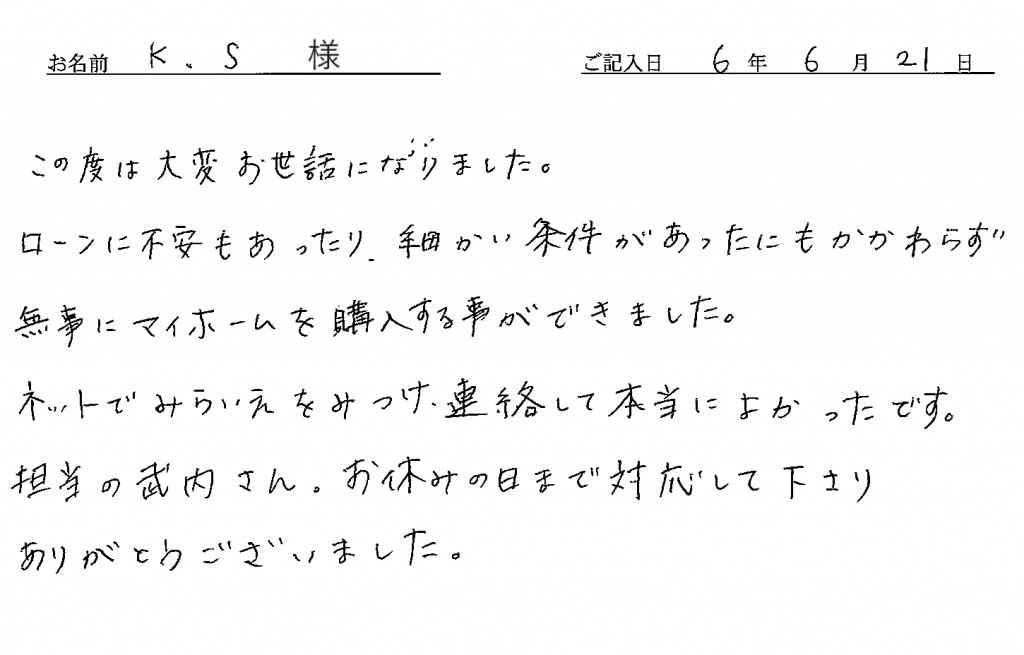 お名前 K、S 様 ご記入日 6年 6月 21日
この度は大変お世話になりました。
ローンに不安もあったり、細かい条件があったにもかかわらず
無事にマイホームを購入する事ができました。
ネットでみらいえをみつけ、連絡して本当によかったです。
担当の武内さん。お休みの日まで対応して下さり
ありがとうございました。